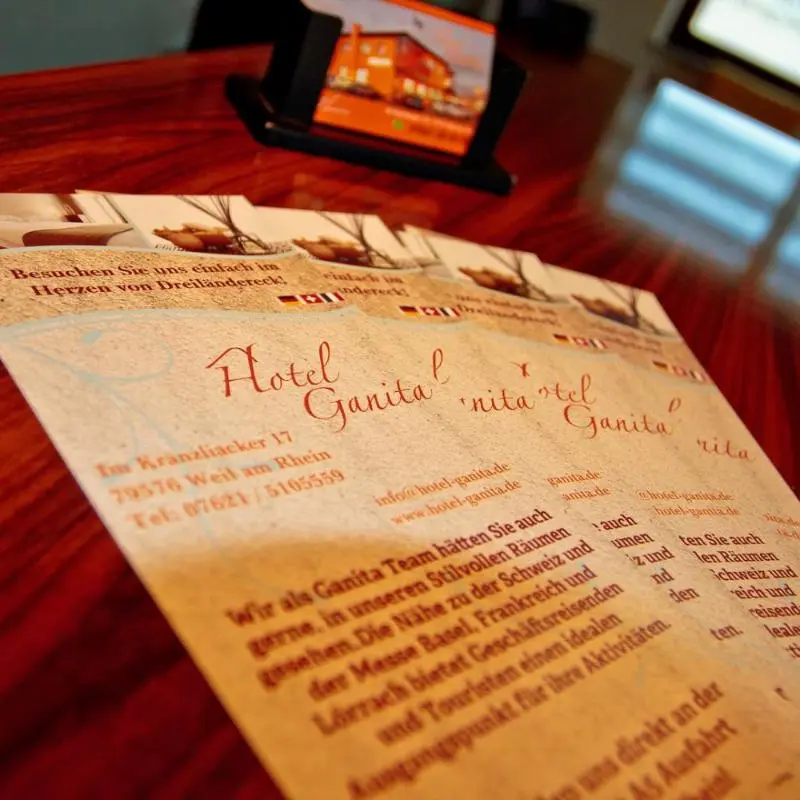 Besuchen Sie uns einfach im
Herzen von Dreiländereck!
einfach im
ändereck!
uns einfach im
Dreiländereck!
Hotel
Ganita
nita
otel
Ganita
Im Kränzliacker 17
79576 Weil am Rhein
Tel: 07621 / 5105559
info@hotel-ganita.de
www.hotel-ganita.de
ganita.de
anita.de
@hotel-ganita.de
hotel-ganita.de
Wir als Ganita Team hätten Sie auch
gerne, in unseren Stilvollen Räumen
gesehen.Die Nähe zu der Schweiz und
der Messe Basel, Frankreich und
Lörrach bietet Geschäftsreisenden
und Touristen einen idealen
Ausgangspunkt für ihre Aktivitäten.
auch
umen
z und
nd
den
ten.
ten Sie auch
len Räumen
chweiz und
reich und
uns direkt an der
A5 Ausfahrt